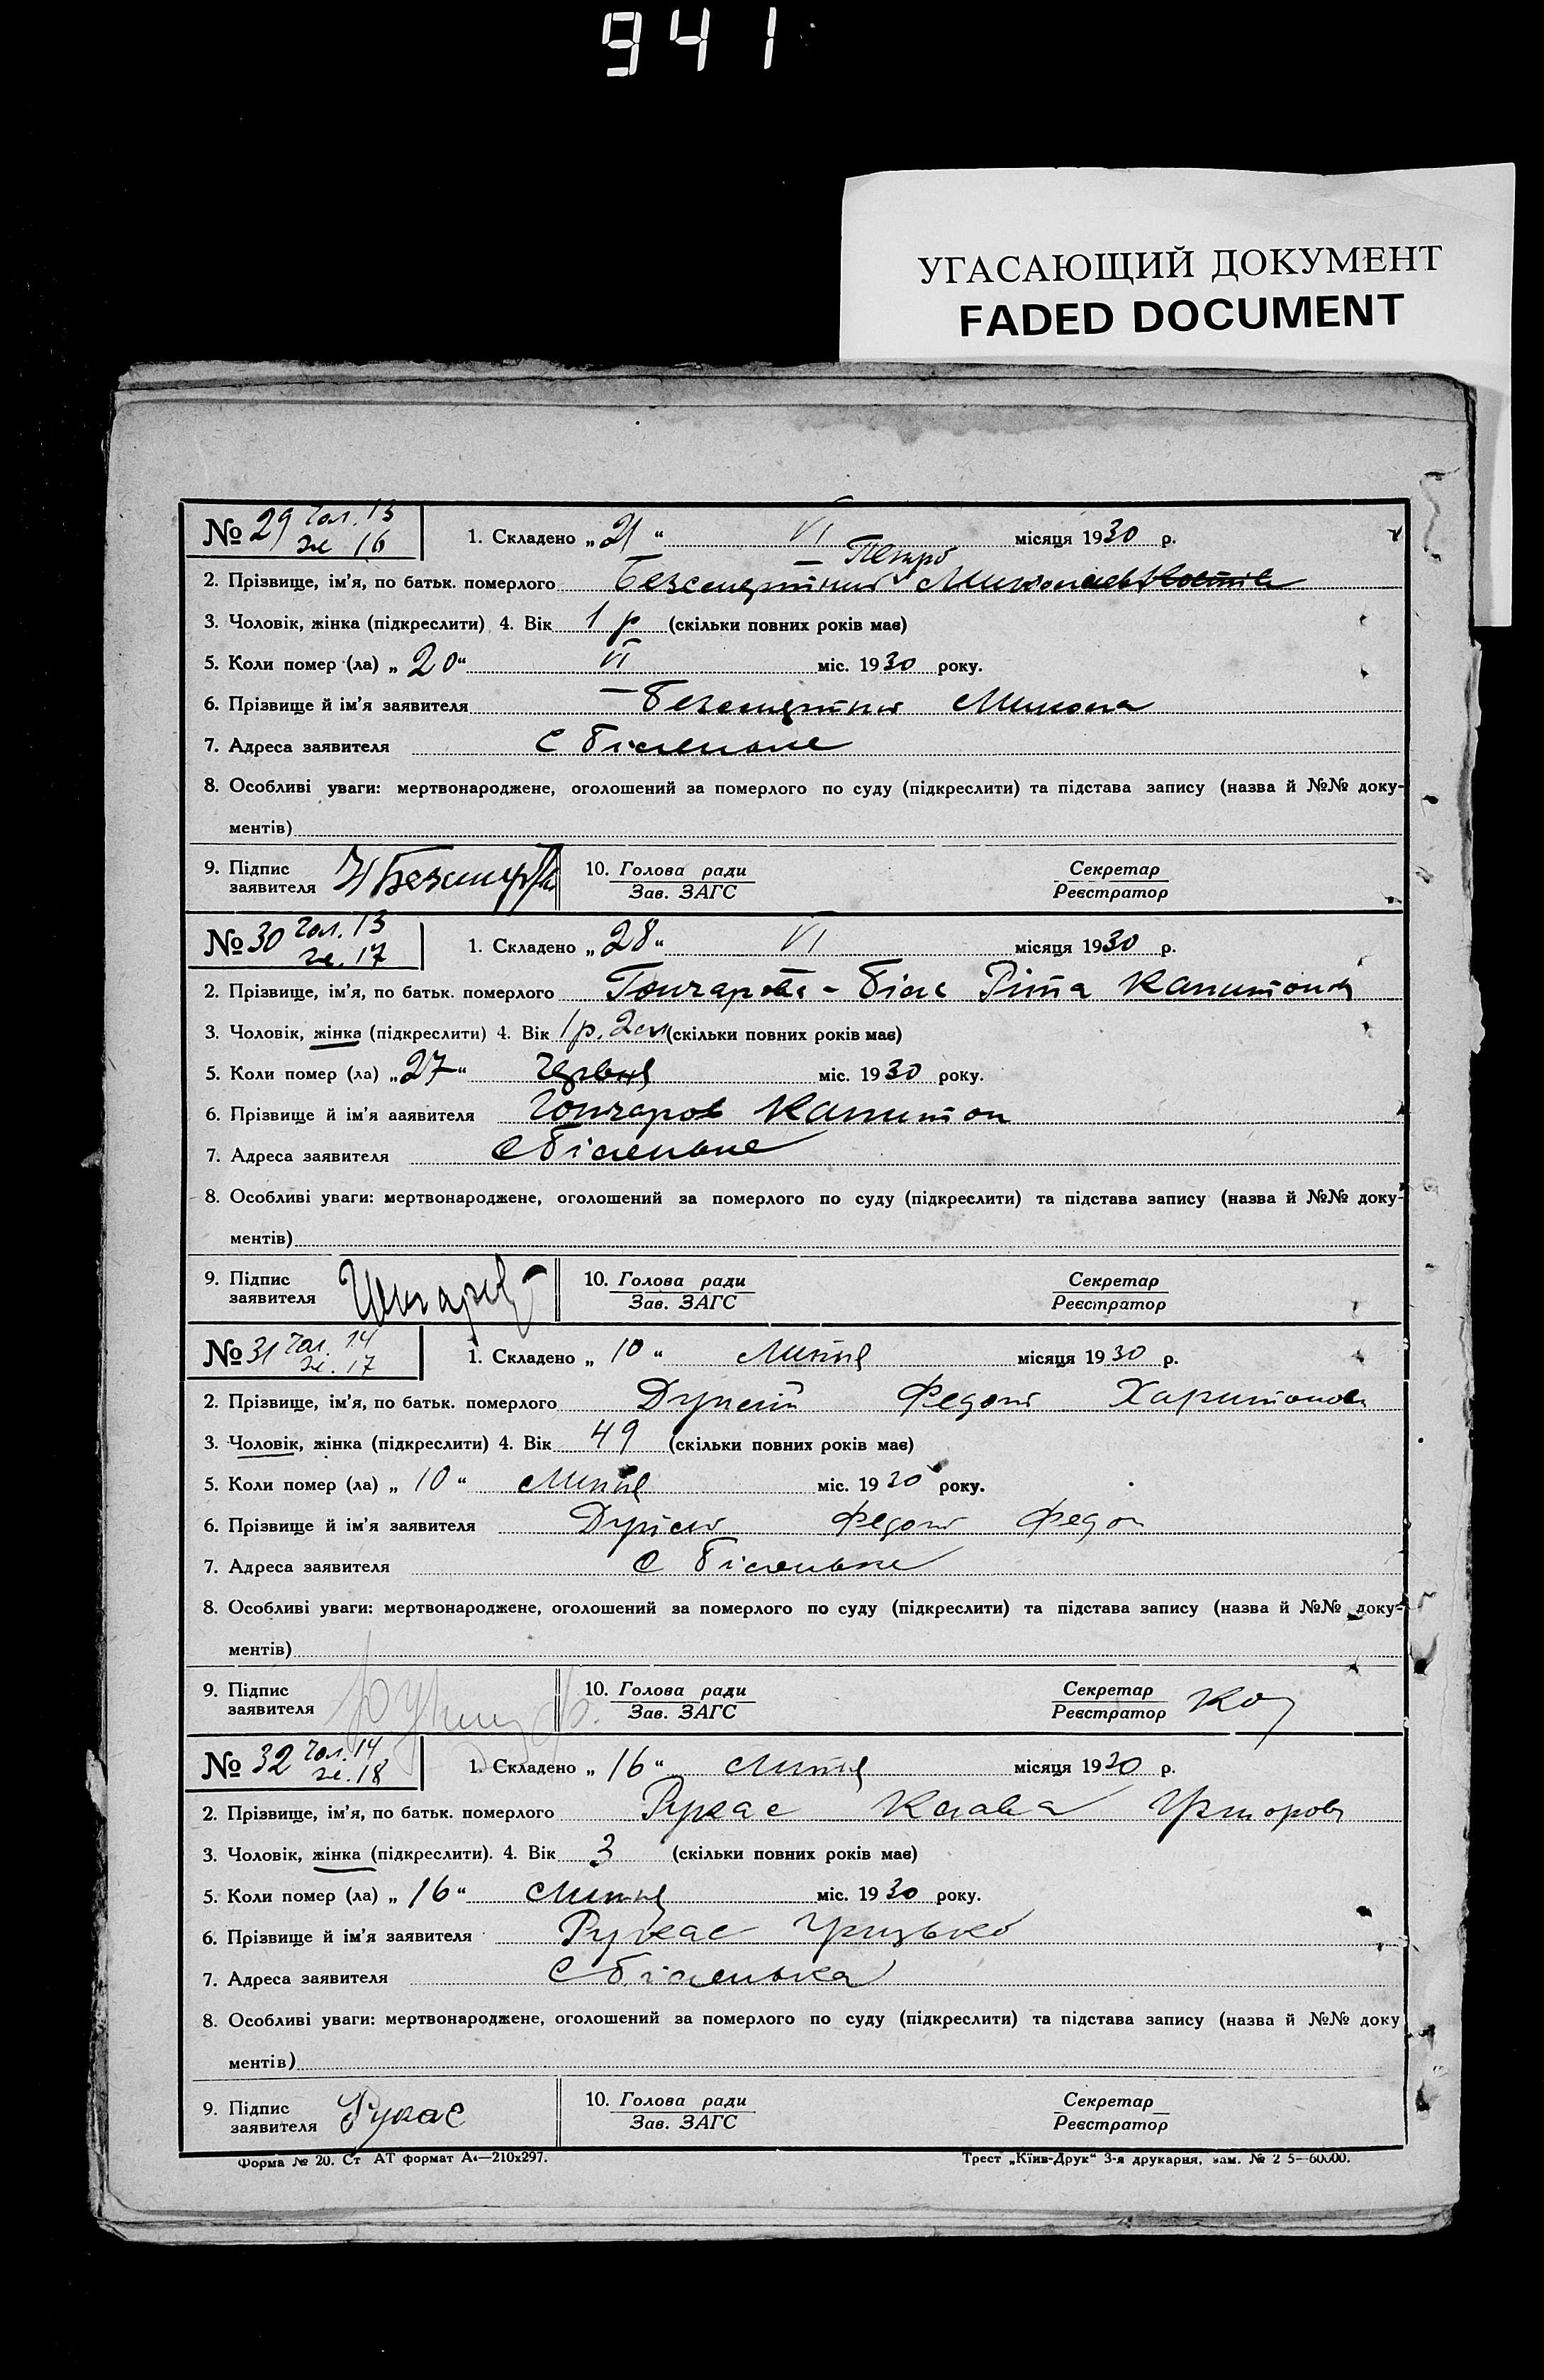 941
УГАСАЮЩИЙ ДОКУМЕНТ
FADED DOCUMENT
№ 29 чол. 13
ж 16
1. Складено „21“ VI місяця 1930 р.
Петро
2. Прізвище, ім’я, по батьк. померлого Безсмертний
3. Чоловік, жінка (підкреслити) 4. Вік 1 р (скільки повних років має)
5. Коли помер (ла) „20“ VI міс. 1930 року.
6. Прізвище й ім’я заявителя Безсмертний Микола
7. Адреса заявителя с Біленьке
8. Особливі уваги: мертвонароджене, оголошений за померлого по суду (підкреслити) та підстава запису (назва й №№ доку-
ментів)
9. Підпис
заявителя
10. Голова ради
Зав. ЗАГС
Секретар
Реєстратор
№ 30 чол. 13
ж. 17
1. Складено „28“ VI місяця 1930 р.
2. Прізвище, ім’я, по батьк. померлого Гончарова - Біла Ріта Капитонов
3. Чоловік, жінка (підкреслити) 4. Вік 1 р. 2 м (скільки повних років має)
5. Коли помер (ла) „27“ червня міс. 1930 року.
6. Прізвище й ім’я ааявителя Гончаров Капитон
7. Адреса заявителя с Біленьке
8. Особливі уваги: мертвонароджене, оголошений за померлого по суду (підкреслити) та підстава запису (назва й №№ доку-
ментів)
9. Підпис
заявителя Гончаров
10. Голова ради
Зав. ЗАГС
Секретар
Реєстратор
№ 31 чол. 14
ж. 17
1. Складено „10“ Липня місяця 1930 р.
2. Прізвище, ім’я, по батьк. померлого Федот Харитонов
3. Чоловік, жінка (підкреслити) 4. Вік 49 (скільки повних років має)
5. Коли помер (ла) „10“ Липня міс. 1930 року.
6. Прізвище й ім’я заявителя Федот Федот
7. Адреса заявителя с Біленьке
8. Особливі уваги: мертвонароджене, оголошений за померлого по суду (підкреслити) та підстава запису (назва й №№ доку-
ментів)
9. Підпис
заявителя
10. Голова ради
Зав. ЗАГС
Секретар
Реєстратор
№ 32 чол. 14
ж. 18
1. Складено „16“ Липня місяця 1930 р.
2. Прізвище, ім’я, по батьк. померлого Рукас Клава
3. Чоловік, жінка (підкреслити). 4. Вік 3 (скільки повних років має)
5. Коли помер (ла) „16“ Липня міс. 1930 року.
6. Прізвище й ім’я заявителя Рукас Грицько
7. Адреса заявителя с Біленька
8. Особливі уваги: мертвонароджене, оголошений за померлого по суду (підкреслити) та підстава запису (назва й №№ доку
ментів)
9. Підпис
заявителя Рукас
10. Голова ради
Зав. ЗАГС
Секретар
Реєстратор
Форма № 20. Ст АТ формат А4—210x297.
Трест „Київ-Друк“ 3-я друкарня, зам. № 2 5—60000.